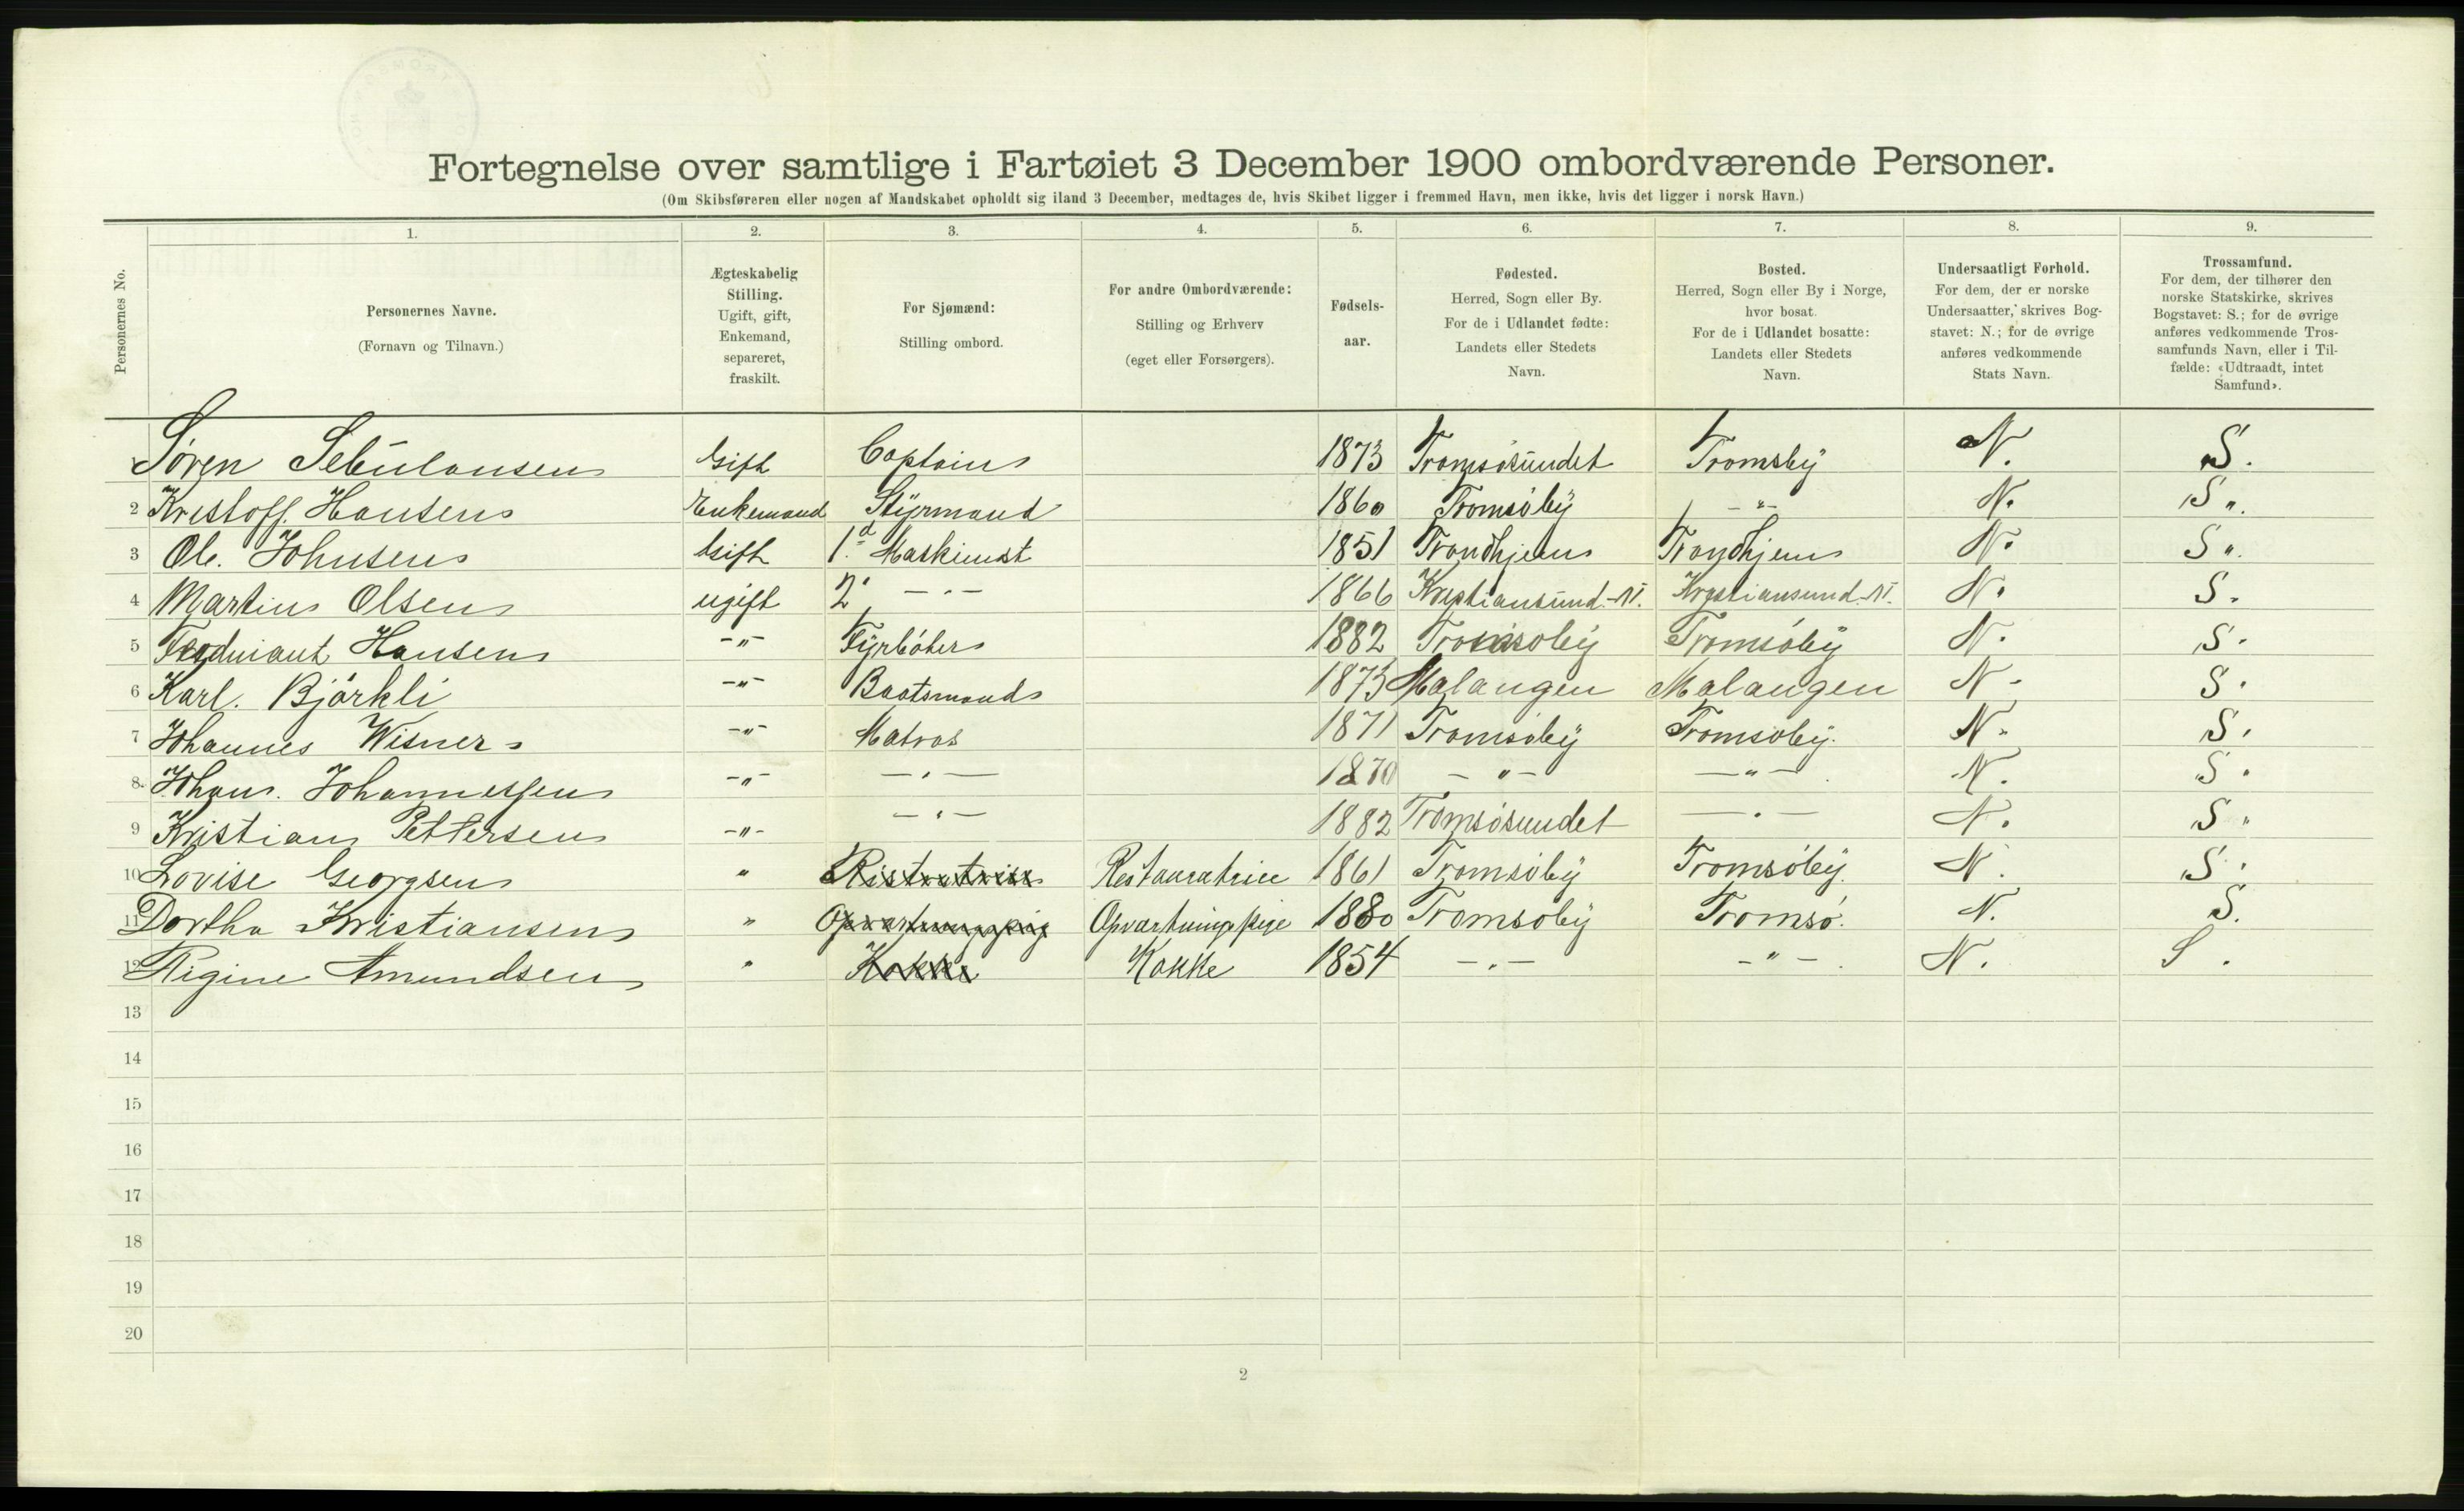 Fortegnelse over samtlige i Fartøiet 3 December 1900 ombordværende Personer.
(Om Skibsføreren eller nogen af Mandskabet opholdt sig iland 3 December, medtages de, hvis Skibet ligger i fremmed Havn, men ikke, hvis det ligger i norsk Havn.)
Personernes No.
1.
Personernes Navne.
(Fornavn og Tilnavn.)
2.
Ægteskabelig
Stilling.
Ugift, gift,
Enkemand,
separeret,
fraskilt.
3.
For Sjømænd:
Stilling ombord.
4.
For andre Ombordværende:
Stilling og Erhverv
(eget eller Forsørgers).
5.
Fødsels-
aar.
6.
Fødested.
Herred, Sogn eller By.
For de i Udlandet fødte:
Landets eller Stedets
Navn.
7.
Bosted.
Herred, Sogn eller By i Norge,
hvor bosat.
For de i Udlandet bosatte:
Landets eller Stedets
Navn.
8.
Undersaatligt Forhold.
For dem, der er norske
Undersaatter, skrives Bog-
stavet: N.; for de øvrige
anføres vedkommende
Stats Navn.
9.
Trossamfund.
For dem, der tilhører den
norske Statskirke, skrives
Bogstavet: S.; for de øvrige
anføres vedkommende Tros-
samfunds Navn, eller i Til-
fælde: «Udtraadt, intet
Samfund».
Søren Sebulonsen Gift Captain 1873 Tromsøsundet Tromsby N. S.
2 Kristoff. Hansen Enkemand Styrmand 1860 Tromsøby -"- N. S".
3 Ole. Johnsen Gift 1.a Maskinist 1851 Trondhjem Trondhjem N. S".
4 Martin Olsen ugift 2. -"- 1866 Kristiansund.-N. Krystiansund.-N. N. S.
5 Hansen -"- Fyrbøter 1882 Tromsøby Tromsøby N. S.
6 Karl. Bjørkli -"- Baatsmand 1873 Malangen Malangen N- S.
7 Johannes Wisner -"- Matros 1871 Tromsøby Tromsøby. N. S.
8. Johan. Johannessen -"- -"- 1870 -"- -"- N. S.
9 Kristian Pettersen -"- -"- 1882 Tromsøsundet -"- N. S.
10 Lovise Georgsen " Ristratrise Restauratrice 1861 Tromsøby Tromsøby. N. S.
11 Dortha Kristiansen " Opvartningspig Opvartningspige 1880 Tromsøby Tromsø. N. S.
12 Rigine Amundsen " Kokke Kokke 1854 -"- -"- N. S.
13
14
15
16
17
18
19
20
2